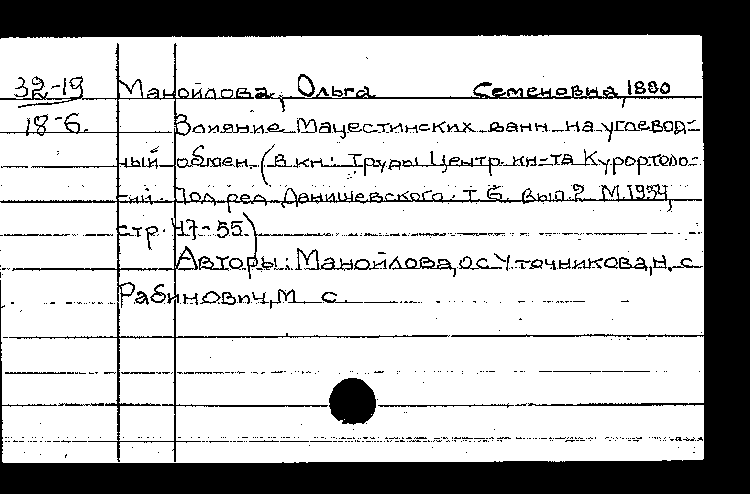 32-19 Манойлова, Ольга Семеновна, 1880
18-6. Влияние Мацестинских ванн на углевод-
ный обмен. (В кн: Труды Центр. ин-та Курортоло-
гии. Под ред. Данишевского. т. 6. вып. 2 М. 1934,
стр. 47-55)
Авторы: Манойлова, О С Уточникова, Н. С
Рабинович, М С.